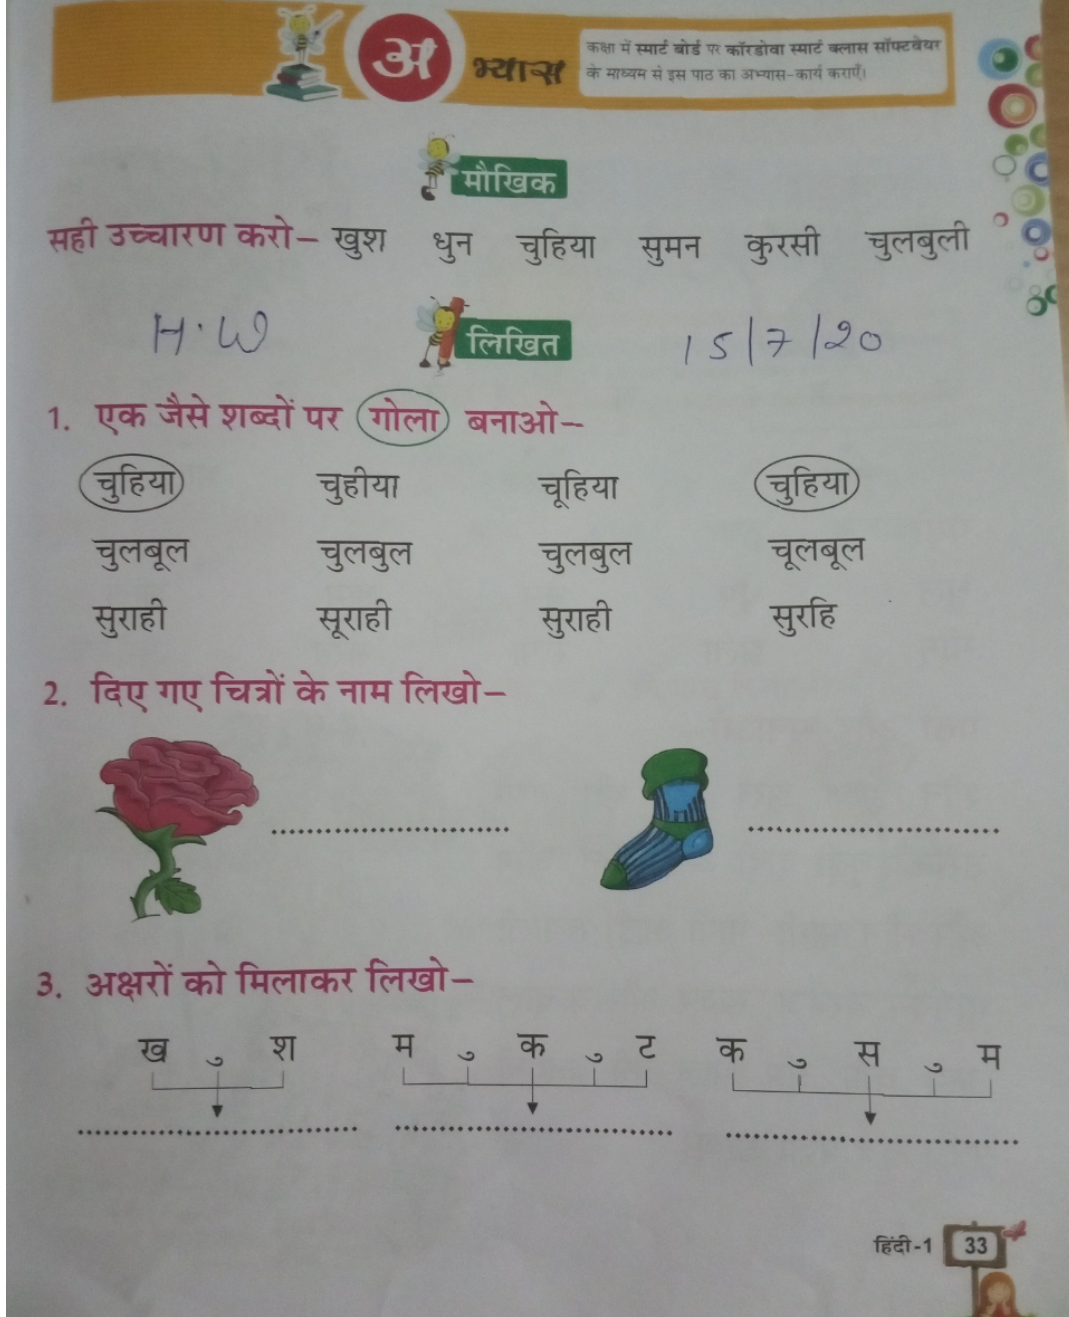 अभ्यास
कक्षा में स्मार्ट बोर्ड पर कॉरडोवा स्मार्ट क्लास सॉफ्टवेयर
के माध्यम से इस पाठ का अभ्यास-कार्य कराएँ।
मौखिक
सही उच्चारण करो– खुश धुन चुहिया सुमन कुरसी चुलबुली
H.W लिखित 15/7/20
1. एक जैसे शब्दों पर गोला बनाओ–
चुहिया चुहीया चूहिया चुहिया
चुलबूल चुलबुल चुलबुल चूलबूल
सुराही सूराही सुराही सुरहि
2. दिए गए चित्रों के नाम लिखो–
3. अक्षरों को मिलाकर लिखो–
ख ु श म ु क ु ट क ु स ु म
हिंदी-1 33